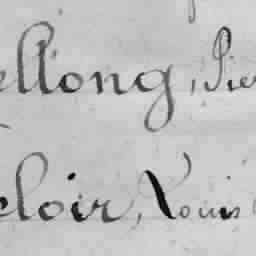 ellong, Pier
eloir, Louis